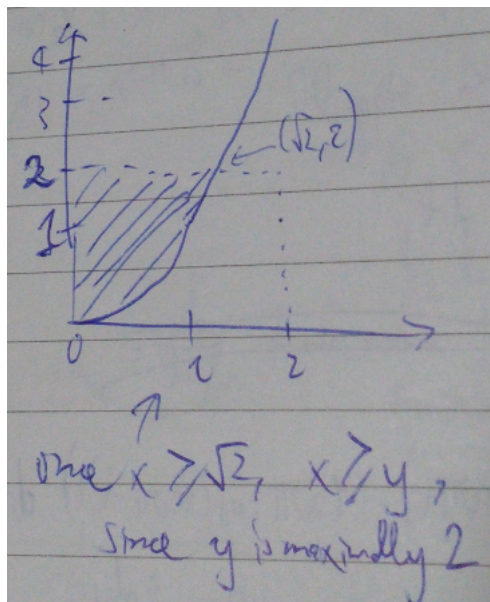 4
3
(√2, 2)
2
1
0 1 2
once x ≥ √2, x ≥ y,
since y is maximally 2